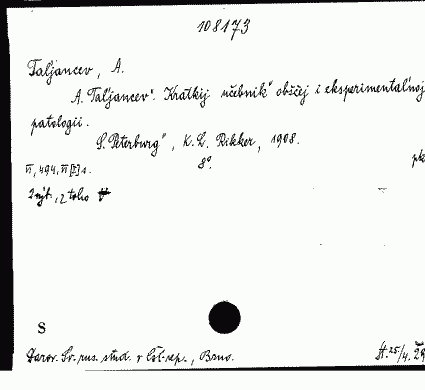 108173
Taljancev, A.
A. Taljancev': Kratkij učebnik" obščej i eksperimental'noj
patologii.
S. Peterburg", K. L. Rikker, 1908.
VI, 494, VI [I] s. 8°.
2 výt., z toho
S
Darov. Sv. rus. stud. v Čsl. rep., Brno.